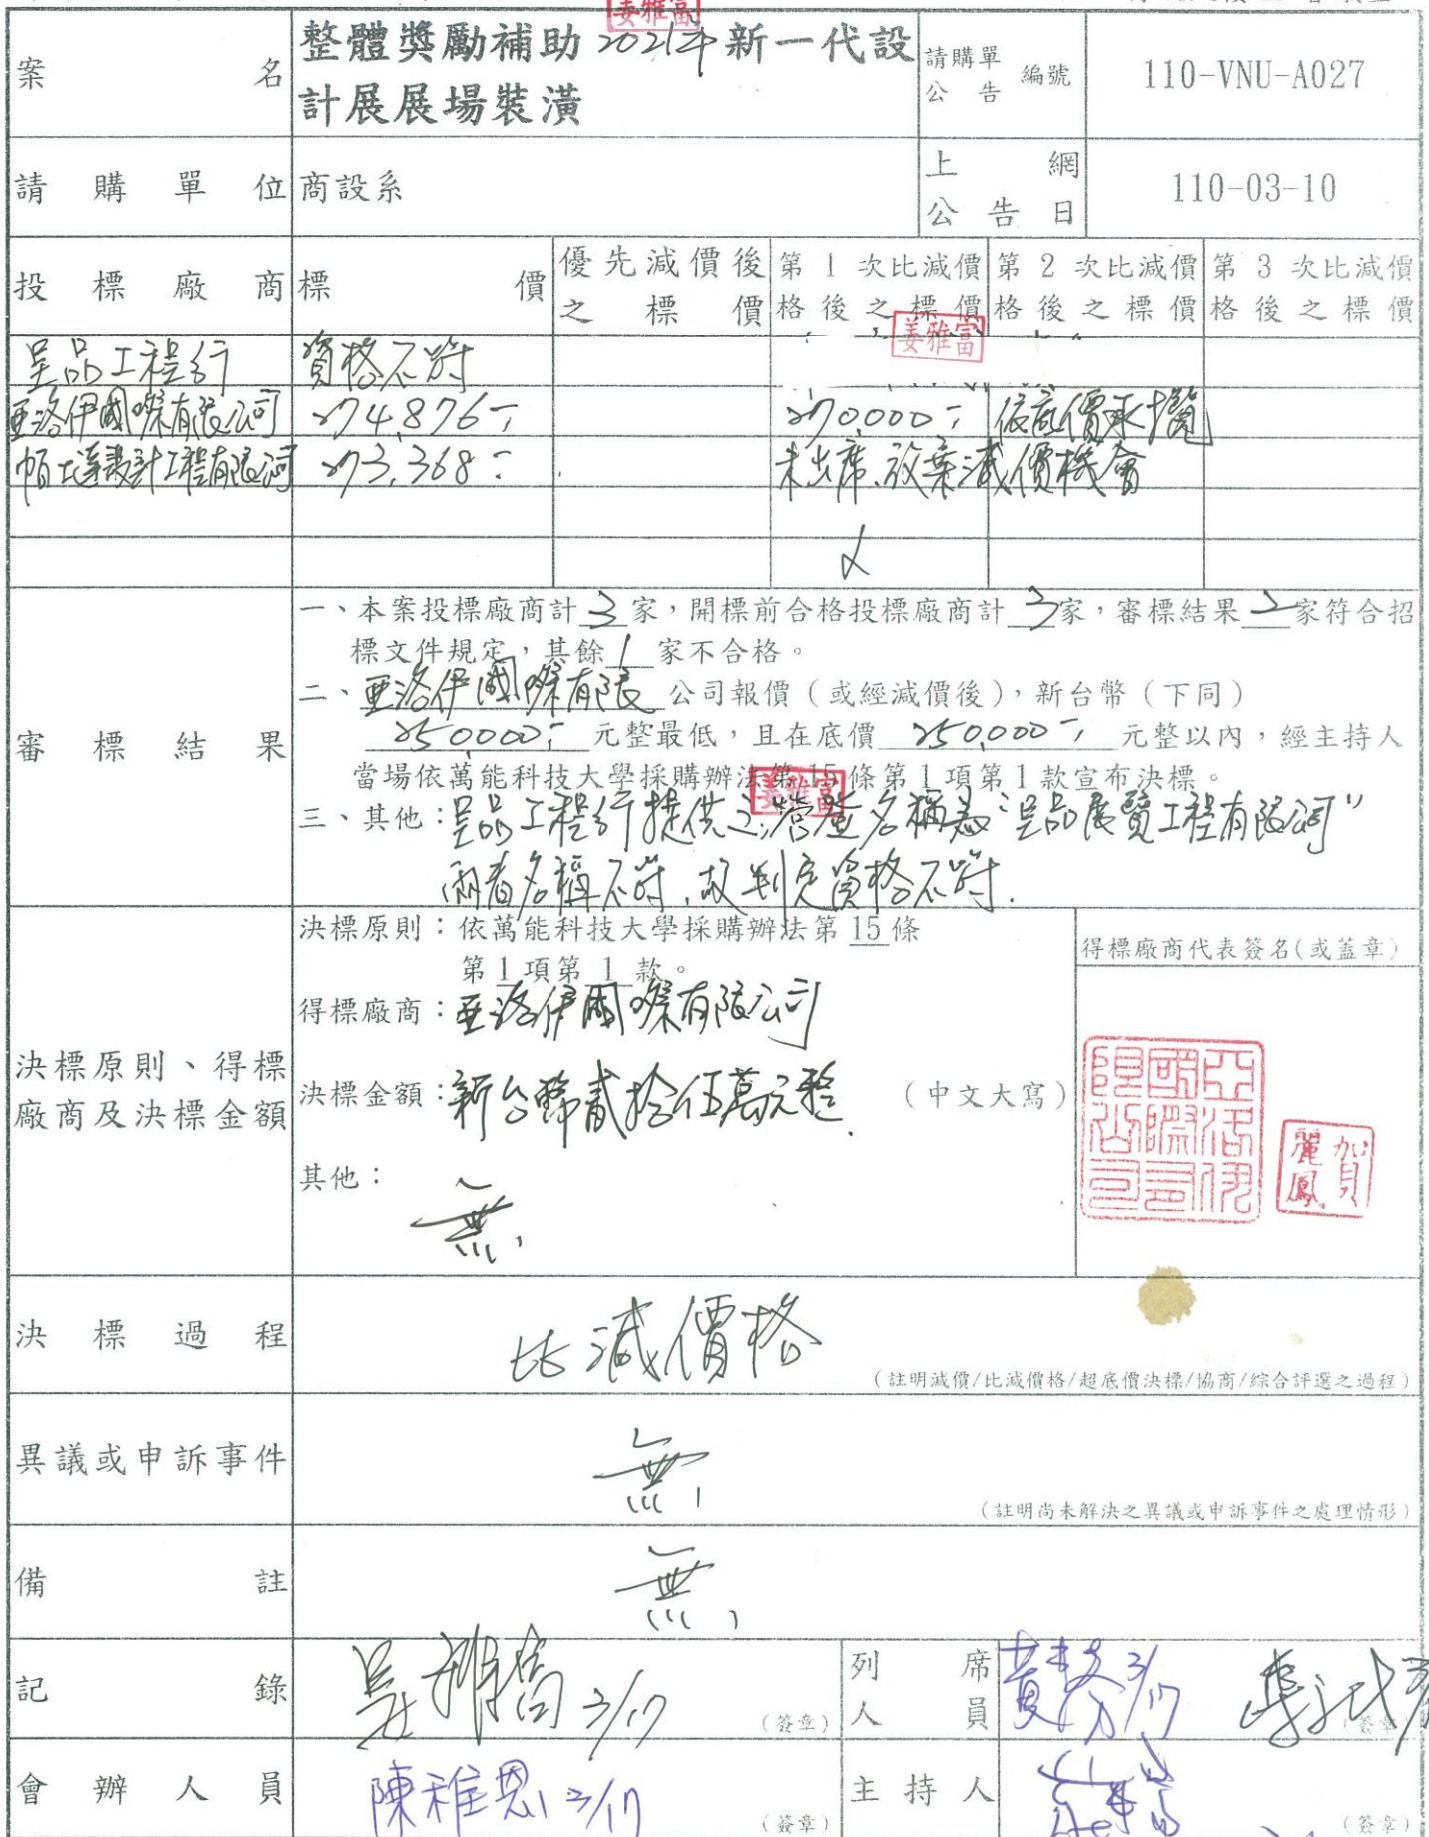 姜雅富
案名 整體獎勵補助2021年新一代設
計展展場裝潢
請購單
公告
編號 110-VNU-A027
請購單位 商設系
上網
公告日
110-03-10
投標廠商 標價
優先減價後
之標價
第1次比減價
格後之標價
第2次比減價
格後之標價
第3次比減價
格後之標價
姜雅富
呈品工程行 資格不符
亞洛伊國際有限公司 274,876- 270,000- 依底價承攬
設計工程有限公司 273,368- 未出席.放棄減價機會
審標結果
一、本案投標廠商計3家,開標前合格投標廠商計3家,審標結果2家符合招
標文件規定,其餘1家不合格。
二、亞洛伊國際有限公司報價(或經減價後),新台幣(下同)
250,000-元整最低,且在底價250,000-元整以內,經主持人
當場依萬能科技大學採購辦法第15條第1項第1款宣布決標。
姜雅富
三、其他:呈品工程行提供之營登名稱為"呈品展覽工程有限公司"
兩者名稱不符,故判定資格不符.
決標原則、得標
廠商及決標金額
決標原則:依萬能科技大學採購辦法第15條
第1項第1款。
得標廠商:亞洛伊國際有限公司
決標金額:新台幣貳拾伍萬元整. (中文大寫)
其他:
無
得標廠商代表簽名(或蓋章)
亞洛伊
國際有
限公司
賀
麗鳳
決標過程 比減價格
(註明減價/比減價格/超底價決標/協商/綜合評選之過程)
異議或申訴事件 無
(註明尚未解決之異議或申訴事件之處理情形)
備註 無
記錄 姜雅富 3/17 (簽章)
列席
人員
3/17
(簽章)
會辦人員 陳雅恩 3/17 (簽章)
主持人 (簽章)